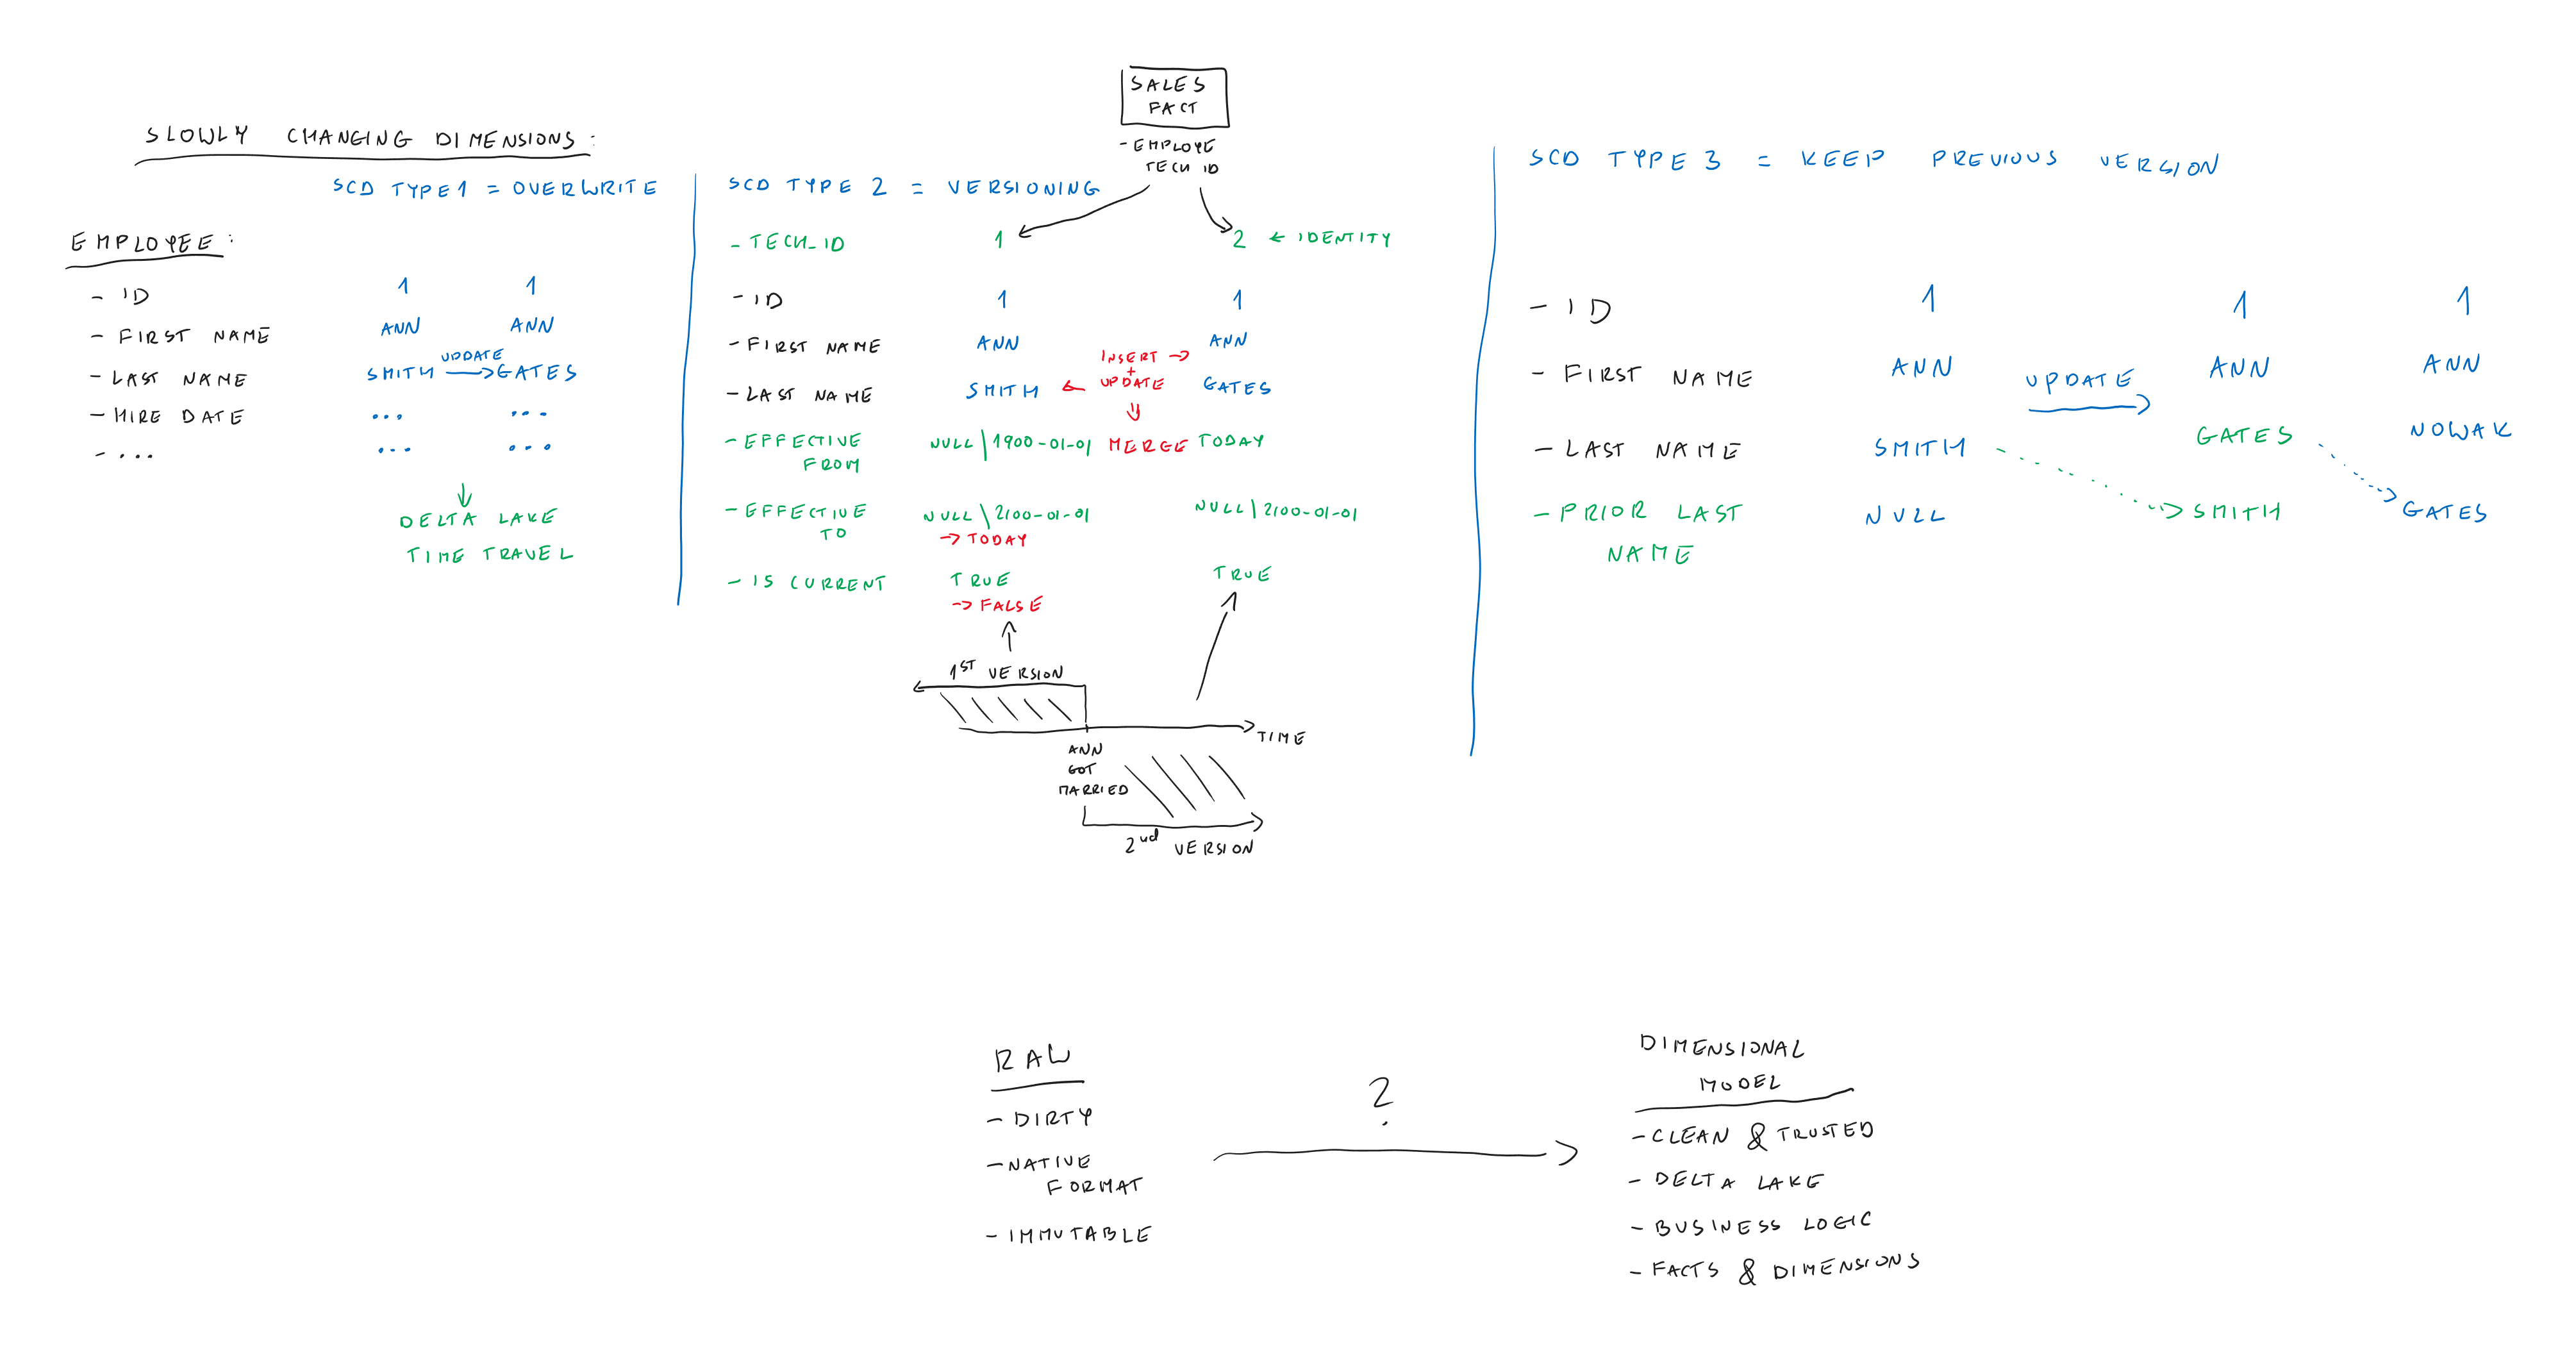 SLOWLY CHANGING DIMENSIONS:
SCD TYPE 1 = OVERWRITE
EMPLOYEE:
- ID 1 1
- FIRST NAME ANN ANN
UPDATE
- LAST NAME SMITH GATES
- HIRE DATE ... ...
- ... ... ...
DELTA LAKE
TIME TRAVEL
SALES
FACT
- EMPLOYE
TECH ID
SCD TYPE 2 = VERSIONING
- TECH_ID 1 2 ← IDENTITY
- ID 1 1
- FIRST NAME ANN ANN
INSERT →
+
← UPDATE
- LAST NAME SMITH GATES
- EFFECTIVE FROM NULL | 1900-01-01 MERGE TODAY
- EFFECTIVE TO NULL \ 2100-01-01 NULL | 2100-01-01
→ TODAY
- IS CURRENT TRUE TRUE
→ FALSE
1ST VERSION
TIME
ANN
GOT
MARRIED
2nd VERSION
SCD TYPE 3 = KEEP PREVIOUS VERSION
- ID 1 1 1
- FIRST NAME ANN ANN ANN
UPDATE
- LAST NAME SMITH GATES NOWAK
- PRIOR LAST NAME NULL SMITH GATES
RAW
- DIRTY
- NATIVE
FORMAT
- IMMUTABLE
?
DIMENSIONAL
MODEL
- CLEAN & TRUSTED
- DELTA LAKE
- BUSINESS LOGIC
- FACTS & DIMENSIONS